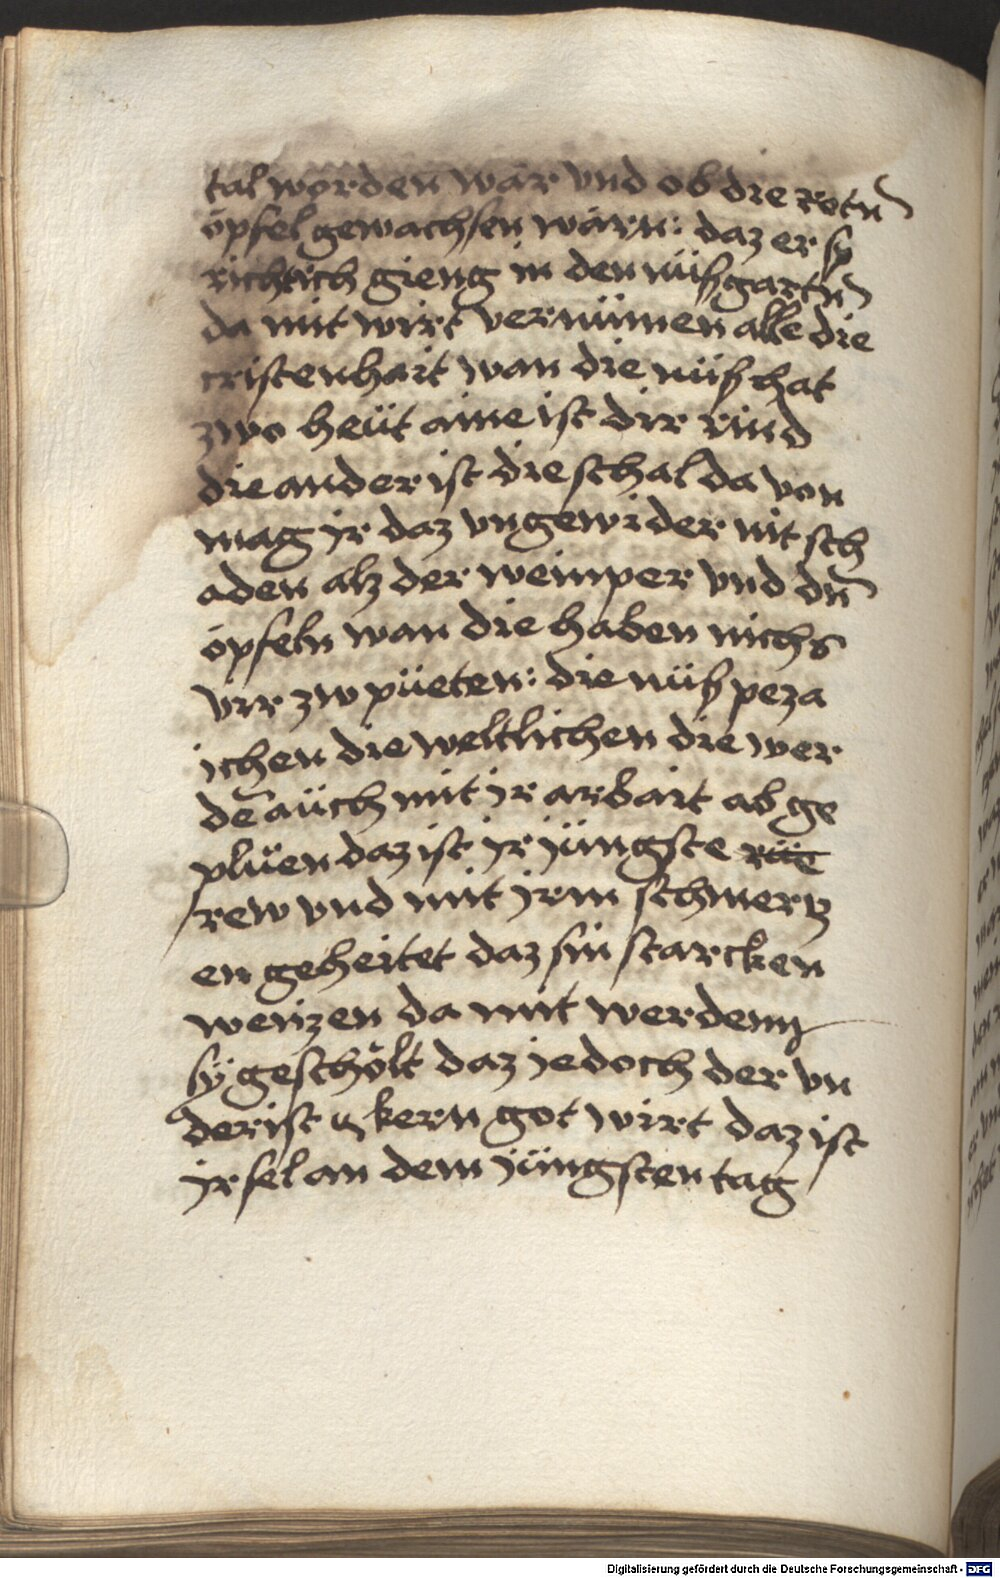 tal worden wär vnd ob die rotn̄
öpfel gewachsen wärn: daz er sy
richtich gieng in den nüßgartn̄
da mit wirt vernümen alle die
cristenhait wan die nüß hat
zwo heüt aine ist dir rind
die ander ist die schal da von
mag jr daz vngewider nit sch
aden alz der weinper vnd dn̄
öpfeln wan die haben nichs
vrr zw püeten: die nüß peza
ichen die weltlichen die wer
dē aüch mit jr arbait ab ge
plüen daz ist jr jüngste
rew vnd mit jrm schmertz
en geheitet daz sin starcken
weizen da mit werdenn
sÿ geschölt daz jedoch der vn
der ist kern got wirt daz ist
jr sel an dem jüngsten tag
Digitalisierung gefördert durch die Deutsche Forschungsgemeinschaft - DFG